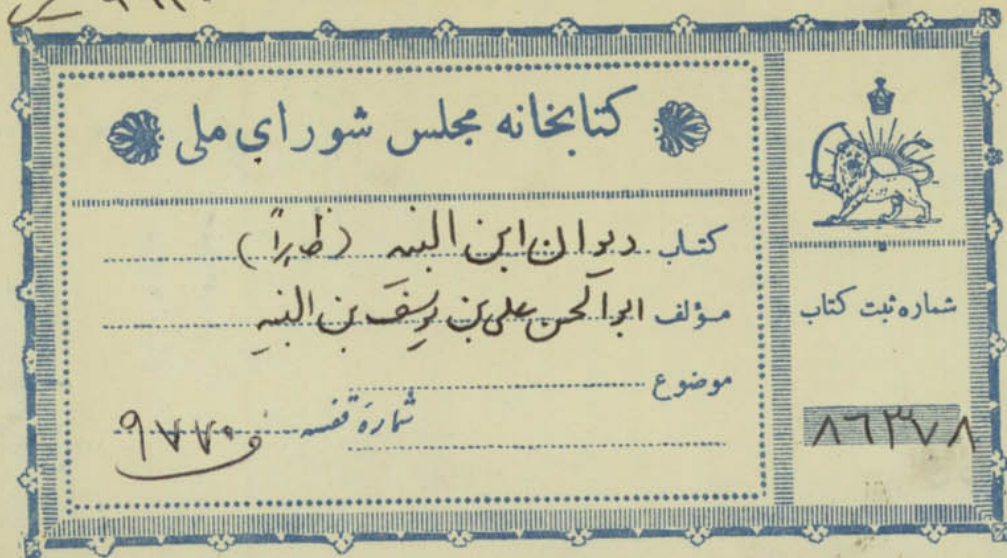 کتابخانه مجلس شورای ملی
کتاب دیوان ابن النبیه (ظاهراً)
مؤلف ابوالحسن علی بن یوسف بن النبیه
موضوع
شمارهٔ قفسه ۹۷۷۰
شماره ثبت کتاب
۸۶۳۷۸